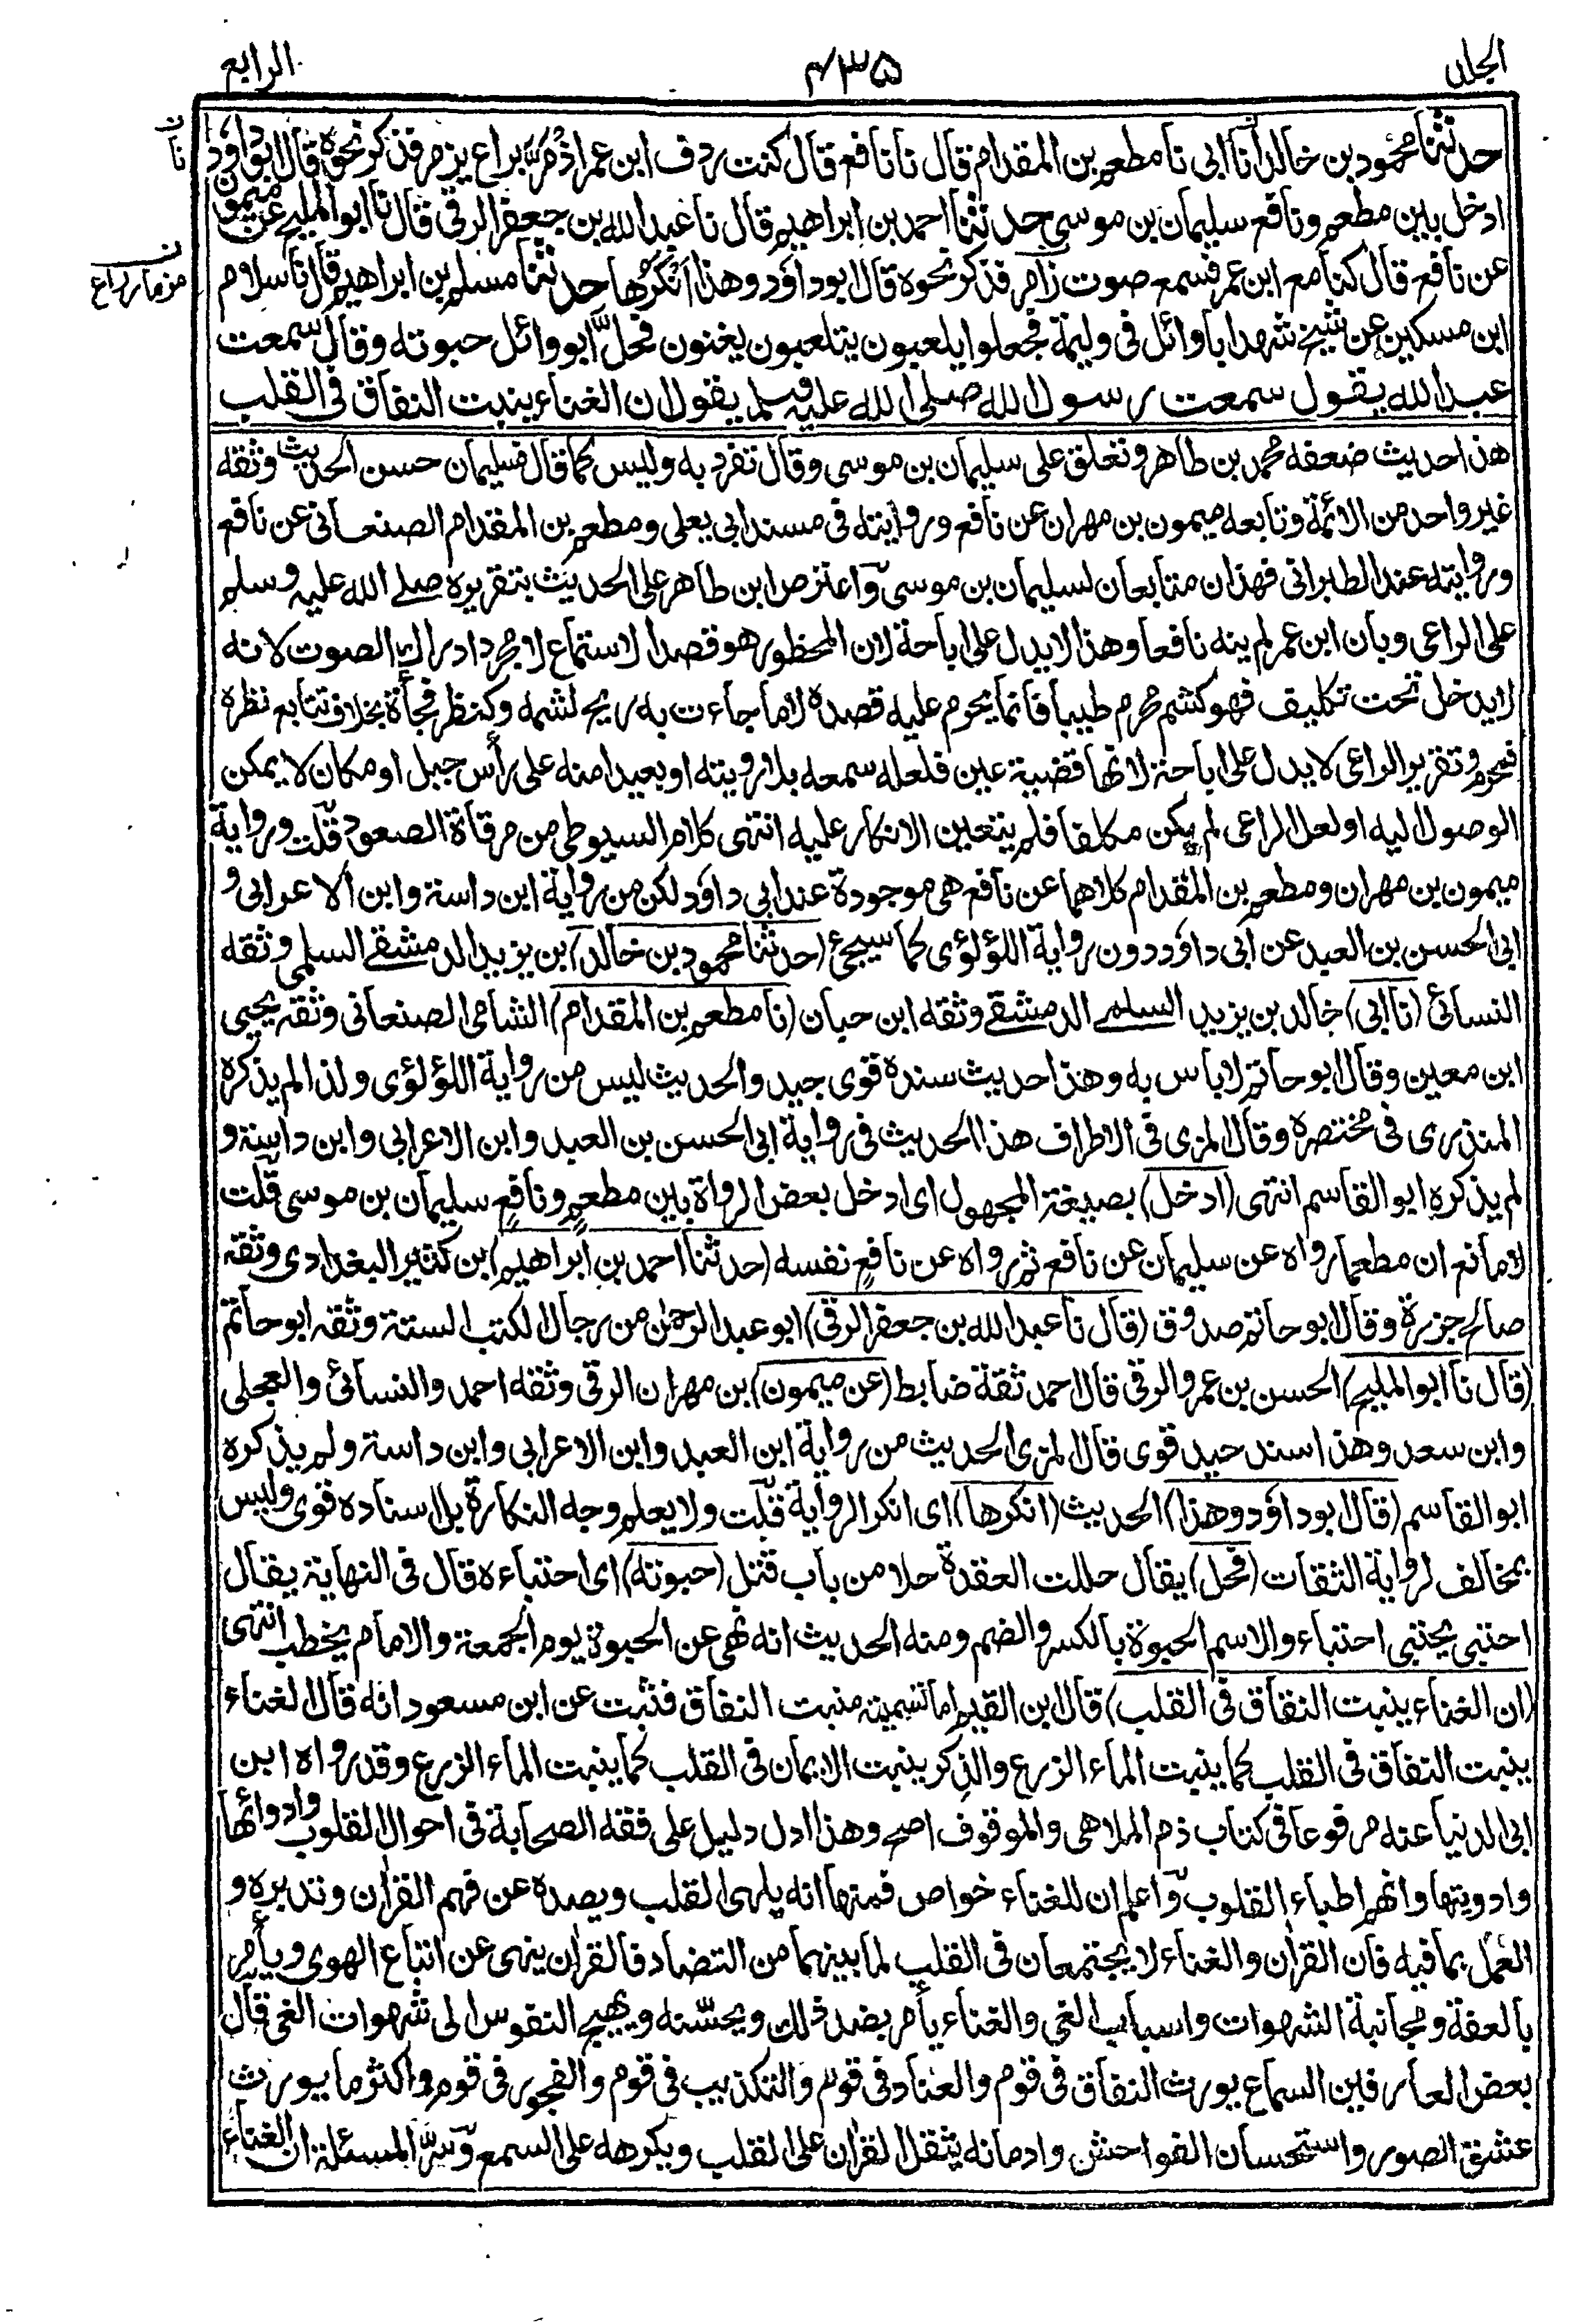 الجلد
۴۳۵
الرابع
حدثنا محمود بن خالد أنا ابى نا مطعم بن المقدام قال نا نافع قال كنت ردف ابن عمر اذ مر براع يزمر فذكر نحوه قال ابو داؤد
ادخل بين مطعم ونافع سليمان بن موسى حدثنا احمد بن ابراهيم قال نا عبد الله بن جعفر الرقى قال نا ابو المليح عن ميمون
عن نافع قال كنا مع ابن عمر فسمع صوت زامر فذكر نحوه قال ابو داؤد وهذا أنكرها حدثنا مسلم بن ابراهيم قال نا سلام
ابن مسكين عن شيخ شهد ابا وائل فى وليمة فجعلوا يلعبون يتلعبون يغنون فحل ابو وائل حبوته وقال سمعت
عبد الله يقول سمعت رسول الله صلى الله عليه وسلم يقول ان الغناء ينبت النفاق فى القلب
ن
نا
ن
مزمار راع
هذا حديث ضعفه محمد بن طاهر وتعلق على سليمان بن موسى وقال تفرد به وليس كما قال فسليمان حسن الحديث وثقه
غير واحد من الائمة وتابعه ميمون بن مهران عن نافع وروايته فى مسند ابى يعلى ومطعم بن المقدام الصنعانى عن نافع
وروايته عند الطبرانى فهذان متابعان لسليمان بن موسى واعترض ابن طاهر على الحديث بتقريره صلے الله عليه وسلم
على الراعى وبان ابن عمر لم ينه نافعا وهذا لا يدل على اباحة لان المحظور هو قصد الاستماع لا مجرد ادراك الصوت لانه
لا يدخل تحت تكليف فهو كشم محرم طيبا فانما يحرم عليه قصده لا ما جاءت به ريح لشمه وكنظر فجأة بخلاف تتابع نظره
فمحرم وتقرير الراعى لا يدل على اباحة لانها قضية عين فلعله سمعه بلا رويته او بعيدا منه على رأس جبل او مكان لا يمكن
الوصول اليه او لعل الراعى لم يكن مكلفا فلم يتعين الانكار عليه انتهى كلام السيوطى من مرقاة الصعود قلت ورواية
ميمون بن مهران ومطعم بن المقدام كلاهما عن نافع هى موجودة عند ابى داؤد لكن من رواية ابن داسة وابن الاعرابى و
ابى الحسن بن العبد عن ابى داؤد دون رواية اللؤلؤى كما سيجئ (حدثنا محمود بن خالد) بن يزيد الدمشقے السلمى وثقه
النسائى (نا ابى) خالد بن يزيد السلمے الدمشقے وثقه ابن حبان (نا مطعم بن المقدام) الشامى الصنعانى وثقه يحيى
ابن معين وقال ابو حاتم لا باس به وهذا حديث سنده قوى جيد والحديث ليس من رواية اللؤلؤى ولذا لم يذكره
المنذرى فى مختصره وقال المزى فى الاطراف هذا الحديث فى رواية ابى الحسن بن العبد وابن الاعرابى وابن داسة و
لم يذكره ابو القاسم انتهى (ادخل) بصيغة المجهول اى ادخل بعض الرواة بين مطعم ونافع سليمان بن موسى قلت
لا مانع ان مطعما رواه عن سليمان عن نافع ثم رواه عن نافع نفسه (حدثنا احمد بن ابراهيم) ابن كثير البغدادى وثقه
صالح جزرة وقال ابو حاتم صدوق (قال نا عبد الله بن جعفر الرقى) ابو عبد الرحمن من رجال الكتب الستة وثقه ابو حاتم
(قال نا ابو المليح) الحسن بن عمرو الرقى قال احمد ثقة ضابط (عن ميمون) بن مهران الرقى وثقه احمد والنسائى والعجلى
وابن سعد وهذا اسند جيد قوى قال المزى الحديث من رواية ابن العبد وابن الاعرابى وابن داسة ولم يذكره
ابو القاسم (قال ابو داؤد وهذا) الحديث (انكرها) اى انكر الرواية قلت ولا يعلم وجه النكارة بل اسناده قوى وليس
بمخالف لرواية الثقات (فحل) يقال حللت العقدة حلا من باب قتل (حبوته) اى احتباءه قال فى النهاية يقال
احتبى يحتبى احتباء والاسم الحبوة بالكسر والضم ومنه الحديث انه نهى عن الحبوة يوم الجمعة والامام يخطب انتهى
(ان الغناء ينبت النفاق فى القلب) قال ابن القيم اما تسميته منبت النفاق فثبت عن ابن مسعود انه قال الغناء
ينبت النفاق فى القلب كما ينبت الماء الزرع والذكر ينبت الايمان فى القلب كما ينبت الماء الزرع وقد رواه ابن
ابى الدنيا عنه مرفوعا فى كتاب ذم الملاهى والموقوف اصح وهذا ادل دليل على فقه الصحابة فى احوال القلوب وادوائها
وادويتها وانهم اطباء القلوب واعلم ان للغناء خواص فمنها انه يلهى القلب ويصده عن فهم القران وتدبره و
العمل بما فيه فان القران والغناء لا يجتمعان فى القلب لما بينهما من التضاد فالقران ينهى عن اتباع الهوى ويأمر
بالعفة ومجانبة الشهوات واسباب الغى والغناء يأمر بضد ذلك ويحسنه ويهيج النفوس الى شهوات الغى قال
بعض العارفين السماع يورث النفاق فى قوم والعناد فى قوم والتكذيب فى قوم والفجور فى قوم واكثر ما يورث
عشق الصور واستحسان الفواحش وادمانه يثقل القران على القلب ويكرهه على السمع وسر المسئلة ان الغناء